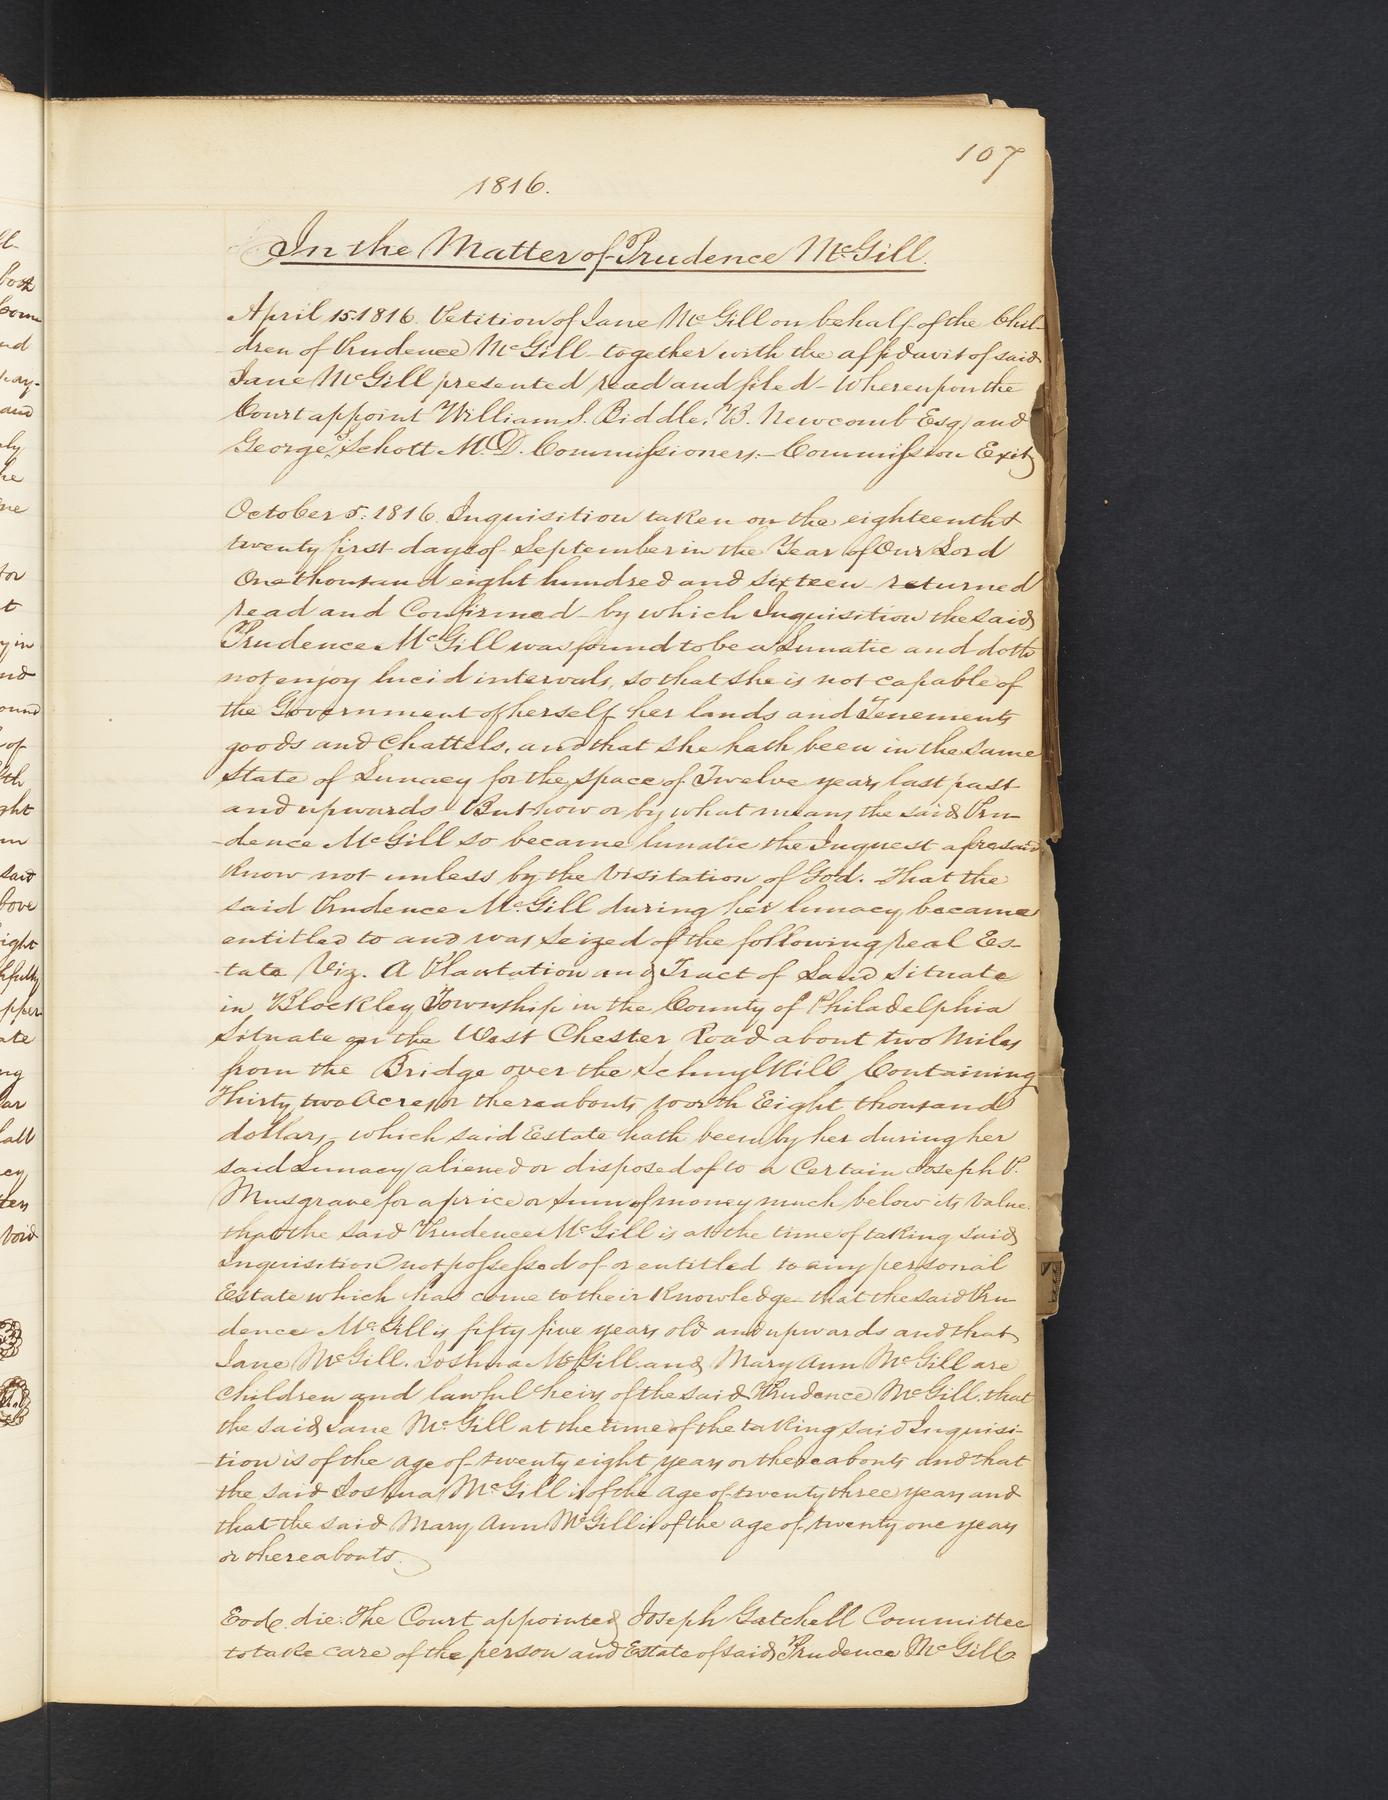 107
1816.
In the Matter of Prudence McGill.
April 15. 1816. Petition of Jane McGill on behalf of the Chil-
dren of Prudence McGill - together with the affidavit of said
Jane McGill presented read and filed - Whereupon the
Court appoint William S. Biddle, B. Newcomb Esq and
George Schott M.D. Commissioners. - Commission Exit
October 5. 1816. Inquisition taken on the eighteenth &
twenty first days of September in the Year of Our Lord
One thousand eight hundred and sixteen returned
read and Confirmed - by which Inquisition the said
Prudence McGill was found to be a Lunatic and doth
not enjoy lucid intervals, so that she is not capable of
the Government of herself her lands and Tenements
goods and Chattels, and that she hath been in the same
State of Lunacy for the space of Twelve years last past
and upwards But how or by what means the said Pru-
-dence McGill so became lunatic the Inquest aforesaid
Know not unless by the Visitation of God. That the
said Prudence McGill during her lunacy became
entitled to and was seized of the following real Es-
-tate Viz. A Plantation and Tract of Land Situate
in Blockley Township in the County of Philadelphia
Situate on the West Chester Road about two Miles
from the Bridge over the Schuylkill Containing
Thirty two Acres or thereabouts worth Eight thousand
dollars, which said Estate hath been by her during her
said Lunacy aliened or disposed of to a Certain Joseph P.
Musgrave for a price or sum of money much below its Value.
that the said Prudence McGill is at the time of taking said
Inquisition not possessed of or entitled to any personal
Estate which has come to their Knowledge that the said Pru-
dence McGill is fifty five years old and upwards and that
Jane McGill. Joshua McGill and Mary Ann McGill are
Children and lawful heirs of the said Prudence McGill. that
the said Jane McGill at the time of the taking said Inquisi-
-tion is of the age of twenty eight years or thereabouts and that
the said Joshua McGill is of the age of twenty three years and
that the said Mary Ann McGill is of the age of twenty one years
or thereabouts.
Eode. die. The Court appointed Joseph Gatchell Committee
to take care of the person and Estate of said Prudence McGill